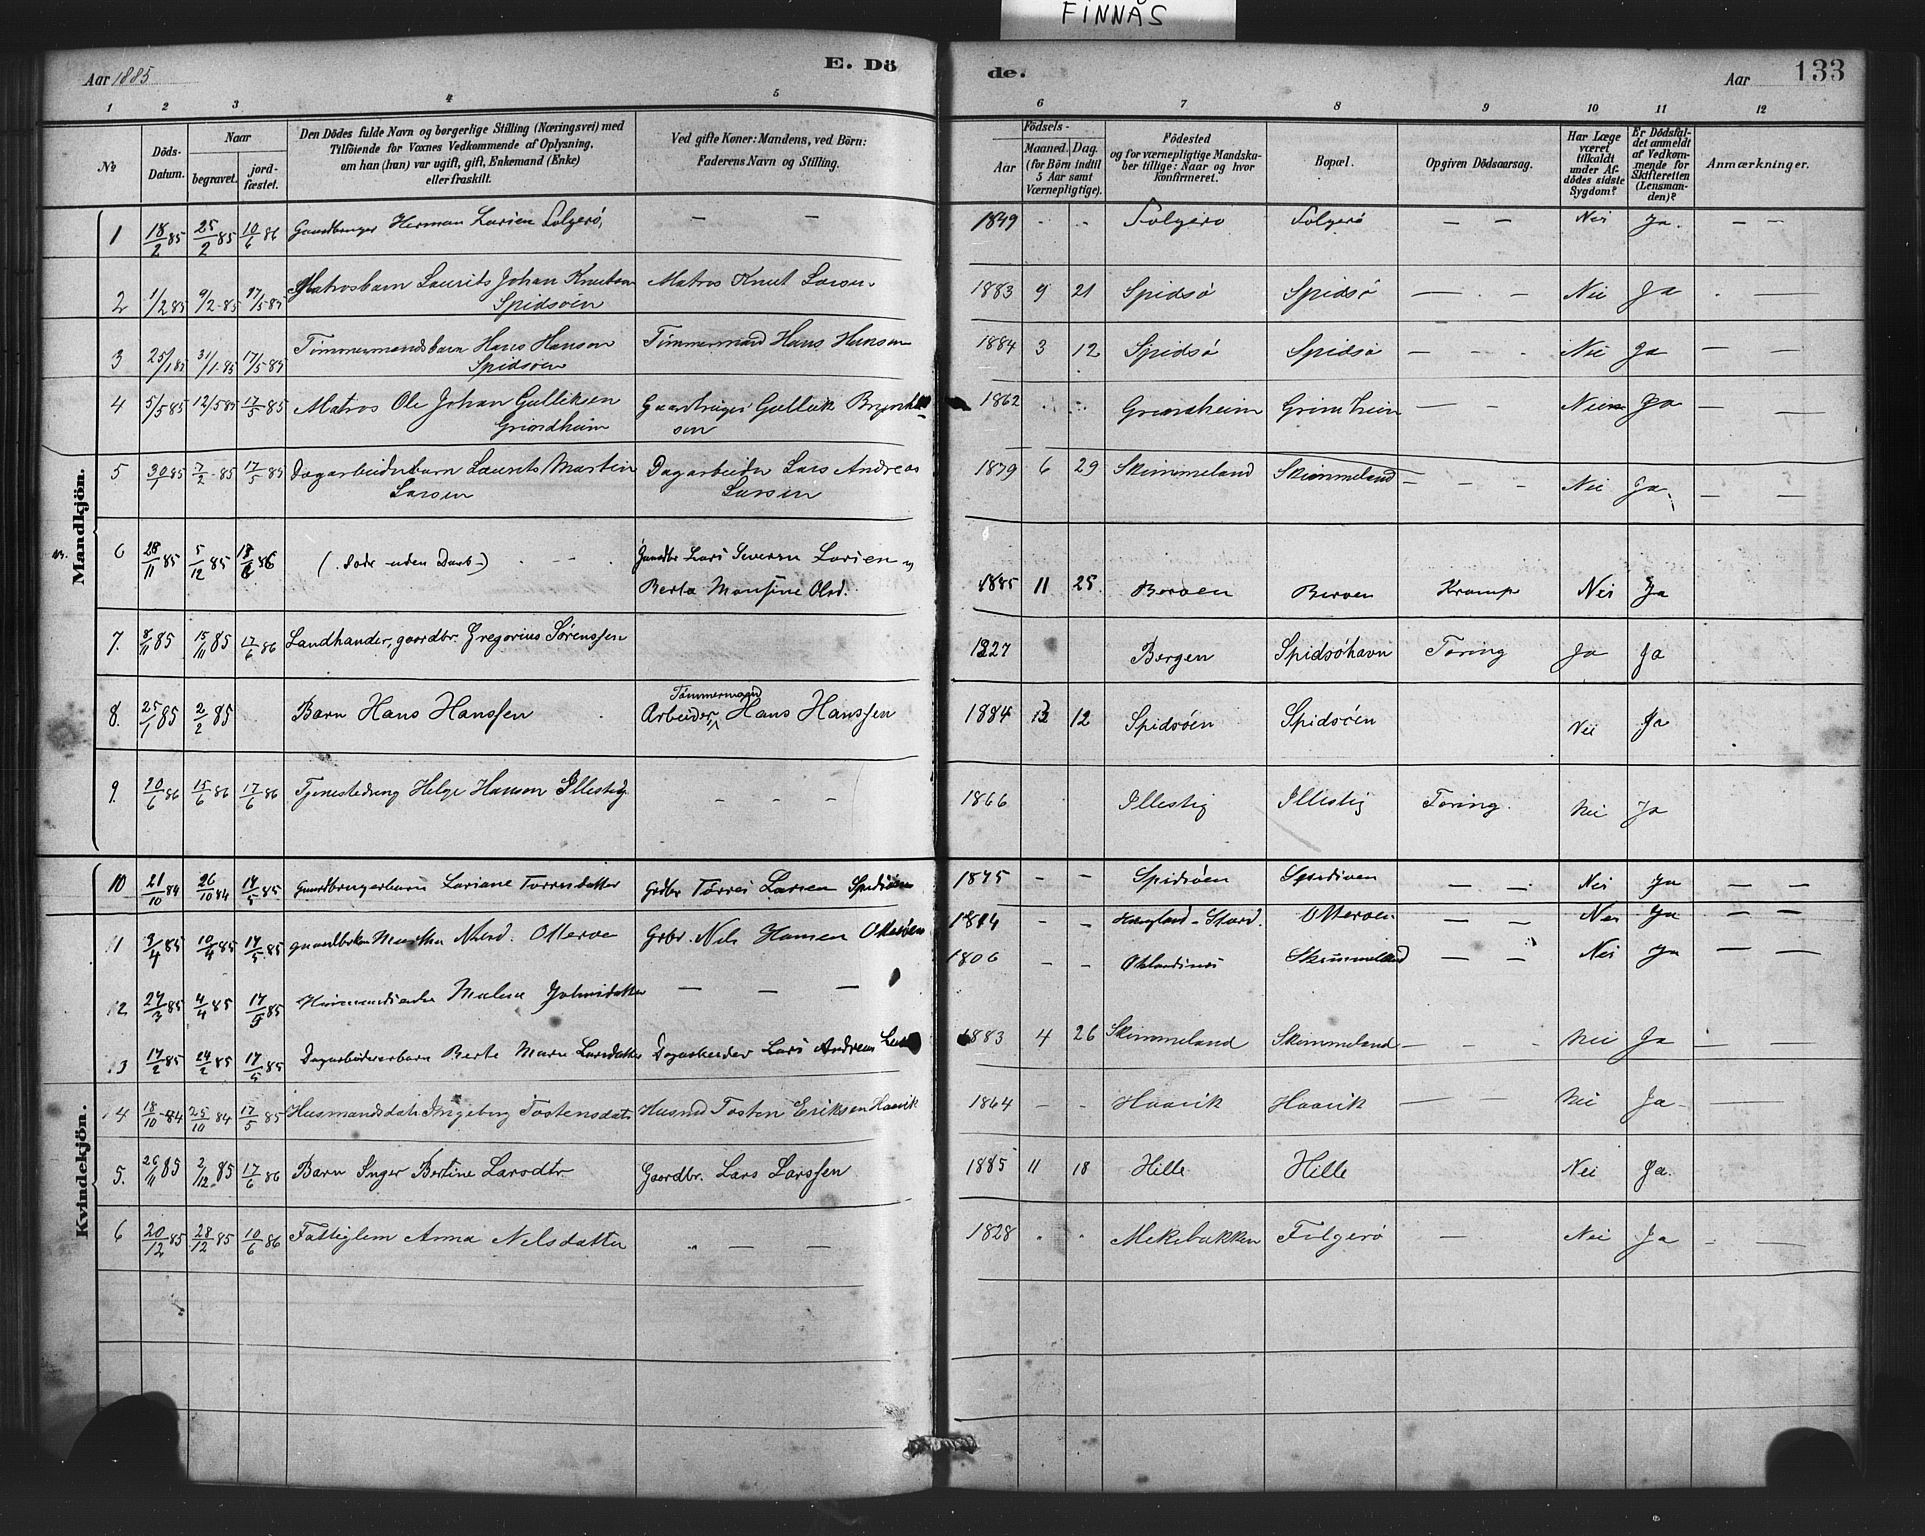 FINNÅS
Aar 1885
E. Dö
de.
Aar
133
1 2 3 4 5 6 7 8 9 10 11 12
No
Döds-Datum.
Naar
begravet.
jord-fæstet.
Den Dödes fulde Navn og borgerlige Stilling (Næringsvei) med
Tilföiende for Voxnes Vedkommende af Oplysning,
om han (hun) var ugift, gift, Enkemand (Enke)
eller fraskilt.
Ved gifte Koner: Mandens, ved Börn:
Faderens Navn og Stilling.
Födsels-
Aar
Maaned. Dag.
(for Börn indtil
5 Aar samt
Værnepligtige).
Födested
og for værnepligtige Mandska-
ber tillige: Naar og hvor
konfirmeret.
Bopæl.
Opgiven Dödsaarsag.
Har Læge
været
tilkaldt
under Af-
dödes sidste
Sygdom?
Er Dödsfal-
det anmeldt
af Vedkom-
mende for
Skifteretten
(Lensman-
den)?
Anmærkninger.
Mandkjön.
1 18/2 85 25/2 85 10/6 86 Gaardbruger Herman Larsen Folgerö, — — 1849 Folgero Folgerö — — Nei Ja. — —
2 1/2 85 9/2 85 17/5 85 Matrosbarn Laurits Johan Knutsen Matros Knut Larsen 1883 9 21 Spidsö Spidsö — . - Nei Ja . —
Spidsöen
3 25/1 85 31/1 85 17/5 85 Tömmermandsbarn Hans Hanson Tömmermand Hans Hanson 1884 3 12 Spidsö Spidsö — - - Nei Ja — —
Spidsöen
4 5/5 85 12/5 85 17/5 85 Matros Ole Johan Gulliksen Gaardbruger Gullik 1862 Grimsheim — — Ja — —
sen
5 30/1 85 7/2 85 17/5 85 Dagarbeiderbarn Laurits Martin Dagarbeider Lars Andreas 1879 6 29 Skimmeland Skimmeland — - - Nei Ja — —
Larsen Larsen
6 28/11 85 5/12 85 18/6 86 (. Döde uden Daab -) Gaardbr Lars Severin Larsen
Berta Monsine Olsd. 1885 11 25 Beroen Beroen Krampe Nei Ja
7. 8/11 85 15/11 85 17/6 86 Landhandler, gaardbr. Gregorius Sörenssen 1827 Bergen Spidsöhavn Tæring Ja Ja
8. 25/1 85 2/2 85 Barn Hans Hanssen Arbeider Tömmermand Hans Hanssen 1884 12 Spidsöen Spidsöen Nei Ja
9. 10/6 86 15/6 86 17/6 86 Tjenestedreng Helge Hanson Illestig - - - 1866 Illestig Illestig Tæring. Nei Ja
Kvindekjön.
10 21/10 84 26/10 84 17/5 85 Gaardbrugerbarn Lariane Torresdatter Grdbr Torres Larsen Spidsöen 1875 — — Spidsöen Spidsöen — — Nei Ja — —
11 3/4 85 10/4 85 17/5 85 Martha Nilsd. Otteroe Grbr. Nils Hansen Otteröen 1814 - - Hagland - Stord. Otteroen — — Nei Ja — —
12 27/3 85 4/4 85 17/5 85 Malene — — — 1806 — - Skimmeland — — Nei Ja — —
13 17/2 85 24/2 85 17/5 85 Dagarbeiderbarn Berte Marie Larsdatter Dagarbeider Lars Andreas 1883 4 26 Skimmeland Skimmeland — - - Nei Ja — —
14 18/10 84 25/10 84 17/5 85 Husmandsdatr Ingeborg Tostensdatr Husmd Tosten Eriksen Haavik 1864 - - Haavik Haavik — — Nei Ja - —
5. 26/11 85 2/12 85 17/6 86 Barn Inger Bertine Larsdtr. Gaardbr. Lars Larssen 1885 11 18 Hille Hille Nei Ja.
6 20/12 85 28/12 85 10/6 86 Fattiglem Anna Nelsdatter „ — — 1828 Mekebakken Folgerö — Nei Ja - —